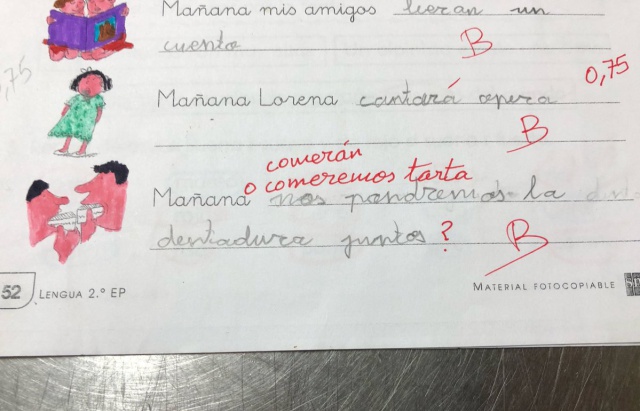 Mañana mis amigos leeran un
cuento B
0,75
Mañana Lorena cantará opera
B
comerán
o comeremos tarta
Mañana nos pondremos la
dentiadura juntos ? B
52 LENGUA 2.º EP MATERIAL FOTOCOPIABLE